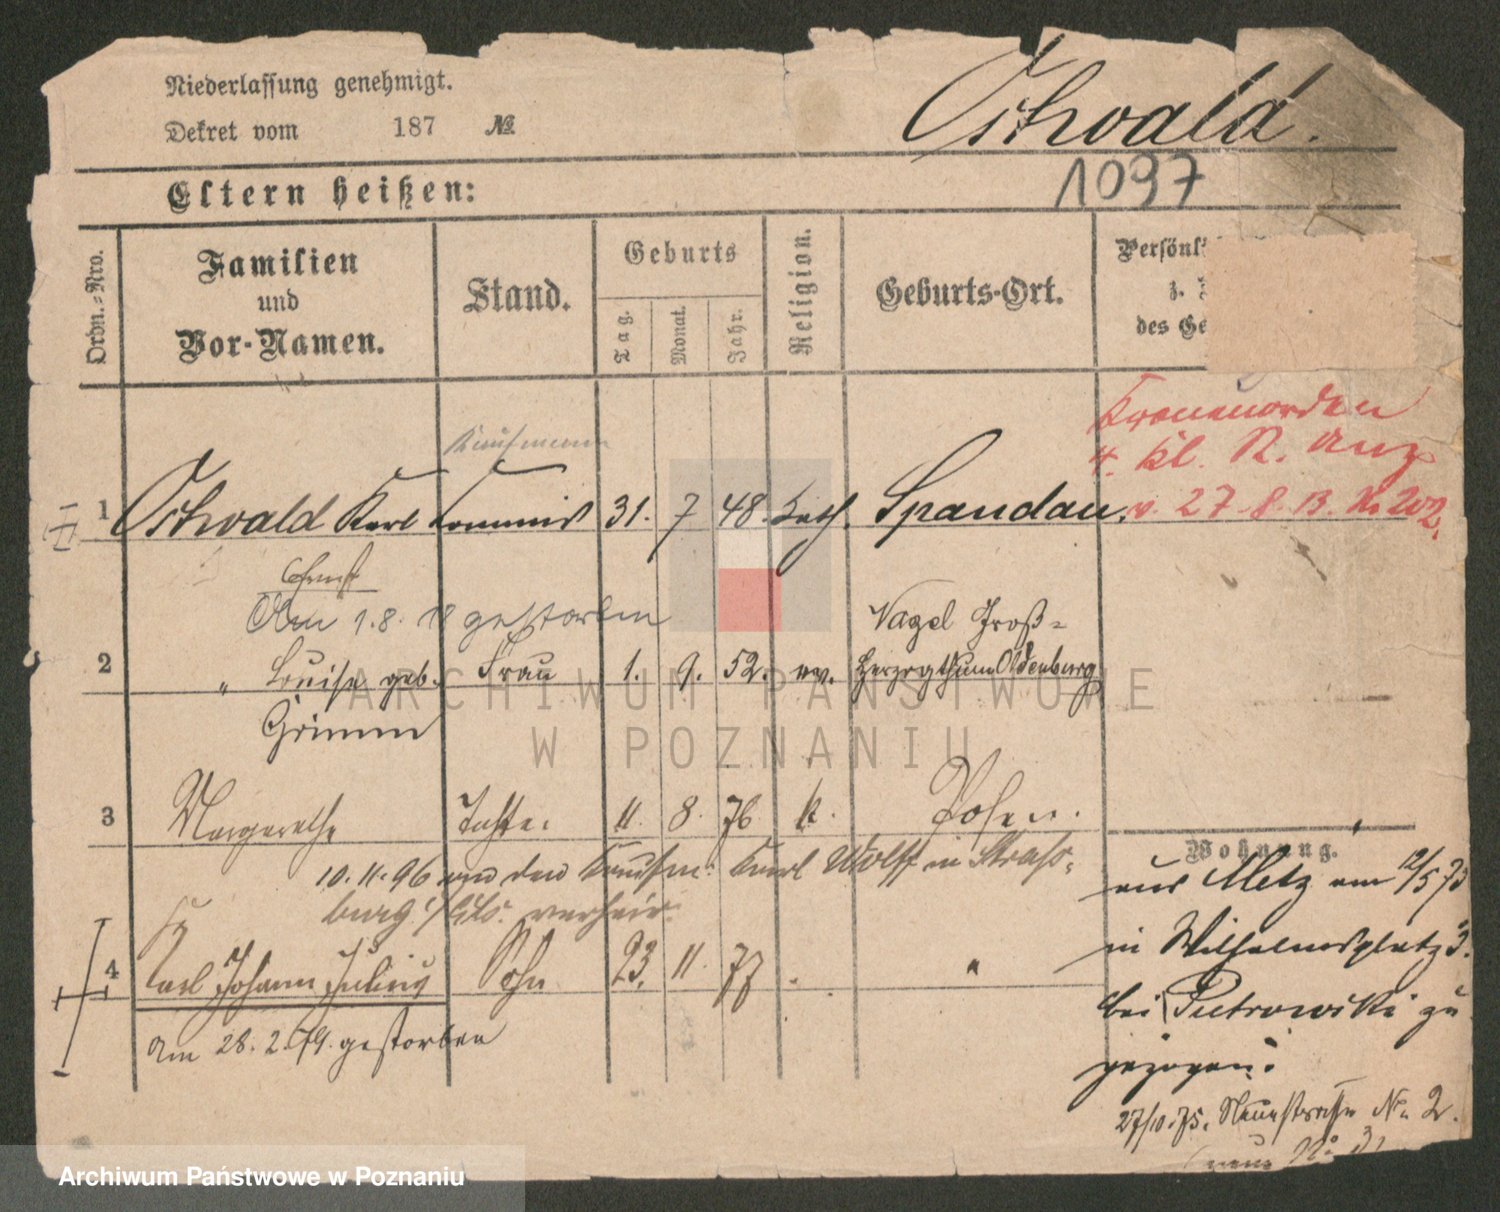 Niederlassung genehmigt.
Dekret vom 187 №
Ostwald.
1097
Eltern heißen:
Ordn.-Nro.
Familien
und
Vor-Namen.
Stand.
Geburts
Tag.
Monat.
Jahr.
Religion.
Geburts-Ort.
Persönl
z.
des Ge
Kronenorden
4. Kl. R. Anz
v. 27.8.13. N. 202.
Kaufmann
1 Ostwald Karl Commis 31. 7 48. kath. Spandau.
Ernst
Am 1.8.18 gestorben
2 " Louise geb. Frau 1. 9. 52. ev.
Grimm
Groß-
herzogthum Oldenburg
3 Margarethe Tochter 11. 8. 76 k. Posen.
10.11.96 den Kaufm. Karl Wolff in Strass-
burg i/Els. verheir.
4 Karl Johann Julius Sohn 23. 11. 77 "
am 28.2.79. gestorben
Wohnung.
aus Metz am 12/5 73
in Wilhelmsplatz 3.
bei Pietrowski zu
gezogen.
27/10.75. Neuestrasse No. 2.
ARCHIWUM PAŃSTWOWE
W POZNANIU
Archiwum Państwowe w Poznaniu